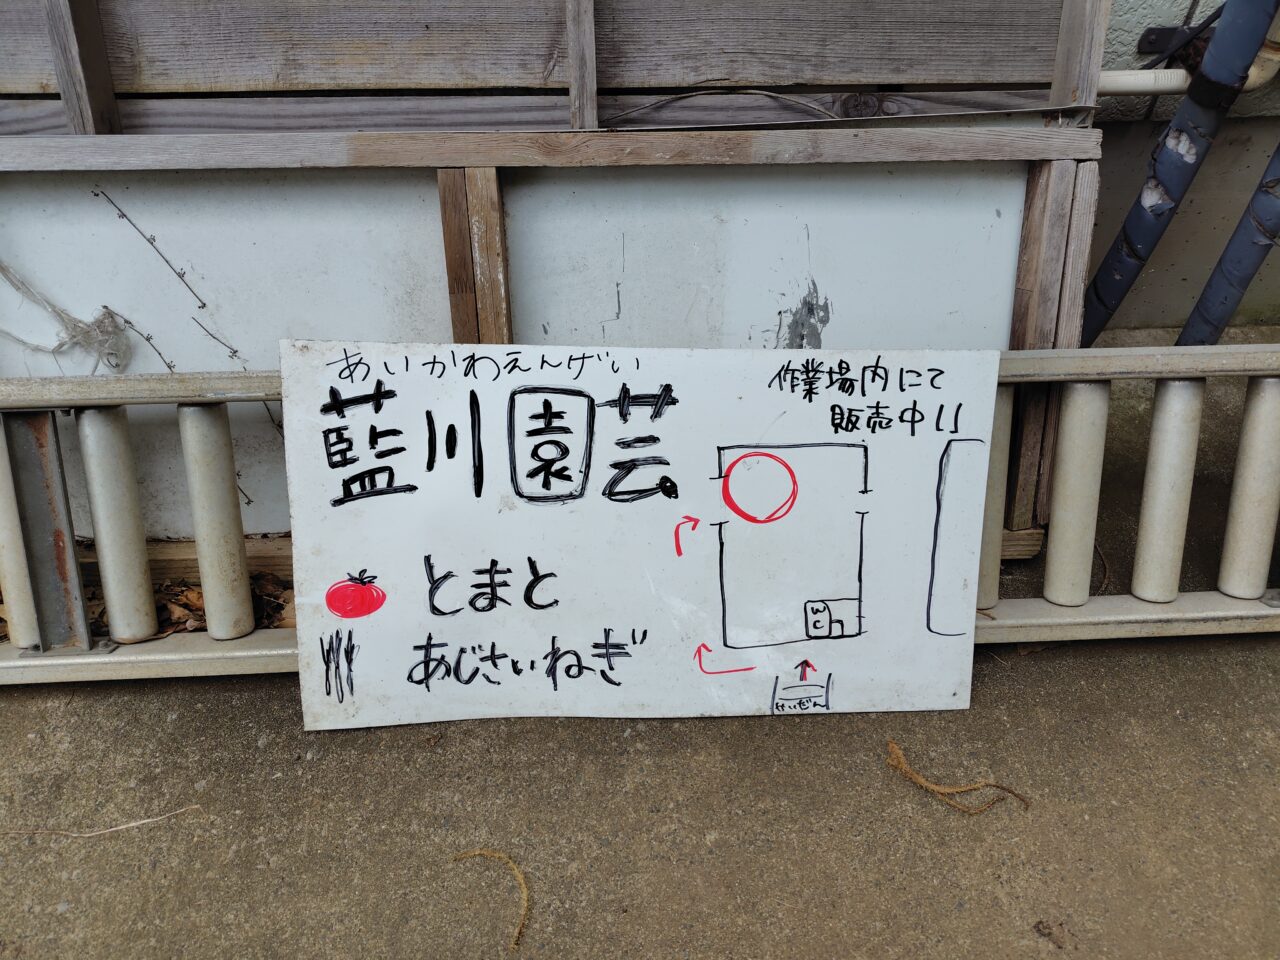 あいかわえんげい
藍川園芸
とまと
あじさいねぎ
作業場内にて
販売中!!
WC
かいだん